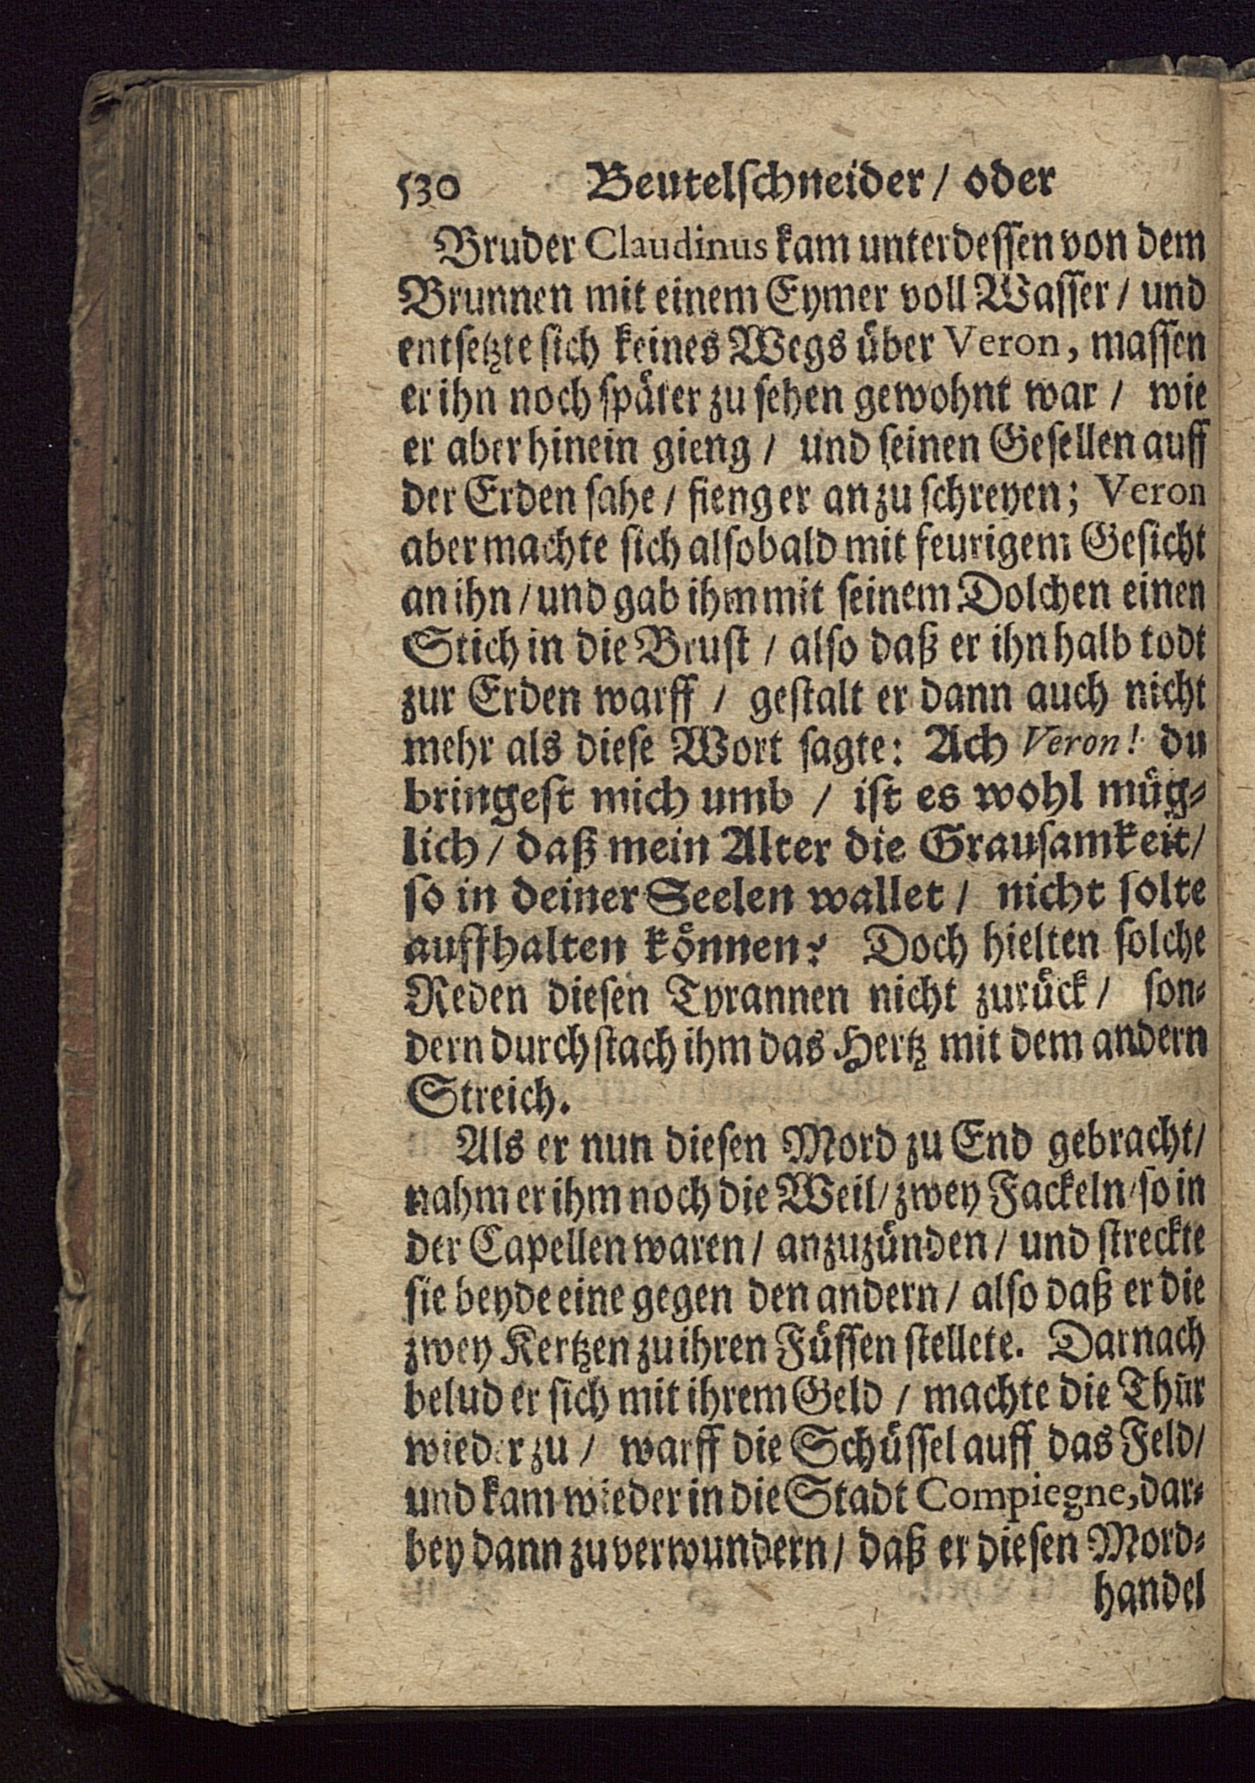 530 Beutelſchneider / oder
Bruder Claudinus kam unterdeſſen von dem
Brunnen mit einem Eymer voll Waſſer / und
entſetzte ſich keines Wegs über Veron, maſſen
er ihn noch ſpäter zu ſehen gewohnt war / wie
er aber hinein gieng / und ſeinen Geſellen auff
der Erden ſahe / fieng er an zu ſchreyen; Veron
aber machte ſich alſobald mit feurigem Geſicht
an ihn / und gab ihm mit ſeinem Dolchen einen
Stich in die Bruſt / alſo daß er ihn halb todt
zur Erden warff / geſtalt er dann auch nicht
mehr als dieſe Wort ſagte: Ach Veron! du
bringeſt mich umb / iſt es wohl müg-
lich / daß mein Alter die Grauſamkeit /
ſo in deiner Seelen wallet / nicht ſolte
auffhalten können? Doch hielten ſolche
Reden dieſen Tyrannen nicht zurück / ſon-
dern durchſtach ihm das Hertz mit dem andern
Streich.
Als er nun dieſen Mord zu End gebracht /
nahm er ihm noch die Weil / zwey Fackeln / ſo in
der Capellen waren / anzuzünden / und ſtreckte
ſie beyde eine gegen den andern / alſo daß er die
zwey Kertzen zu ihren Füſſen ſtellete. Darnach
belud er ſich mit ihrem Geld / machte die Thür
wieder zu / warff die Schüſſel auff das Feld /
und kam wieder in die Stadt Compiegne, dar-
bey dann zu verwundern / daß er dieſen Mord-
handel